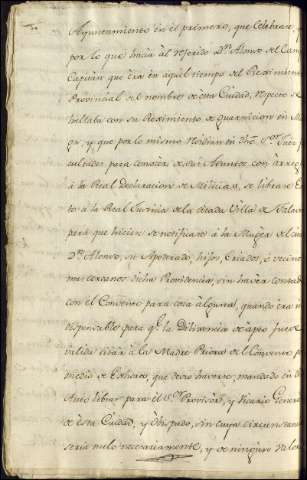 Ayuntamiento en el primero, que Celebrar
por lo que hacia àl referido Dn. Alonso del Cam
Capitan que èra en aquel tiempo del Regimiento
Provincial del nombre de èsta Ciudad, respecto se
hallaba con su Regimiento de guarnicion en
y que por lo mismo residian en
cultades para conocer de sus Asuntos con arreg
à la Real Declaracion de Milicias, se librase E
to à la Real Justicia de la citada Villa de Palac
para que hiciese se notificase à la Muger del
Dn. Alonso, su Apoderado, hijos, Criados, ò vecino
mas cercanos dicha Providencia, sin haver contado
con el Convento para cosa alguna, quando èra in
dispensable para qe. la Diligencia de apeo fuese
valida citar à la Madre Priora del Convento p
medio de Exhorto, que devio haverse mandado en
Auto librar para el Sr. Provisor, y Vicario General
de èsta Ciudad, y Obispado, sin cuya circunstan
seria nulo necesariamente, y de ningun valor